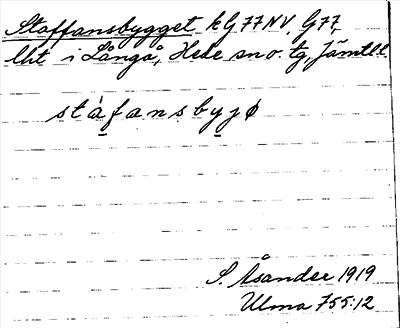 Staffansbygget kG77NV, G77,
lht i Långå, Hede sn o. tg, Jämtl.
stáfansbyjø
S. Åsander 1919
Ulma 755:12